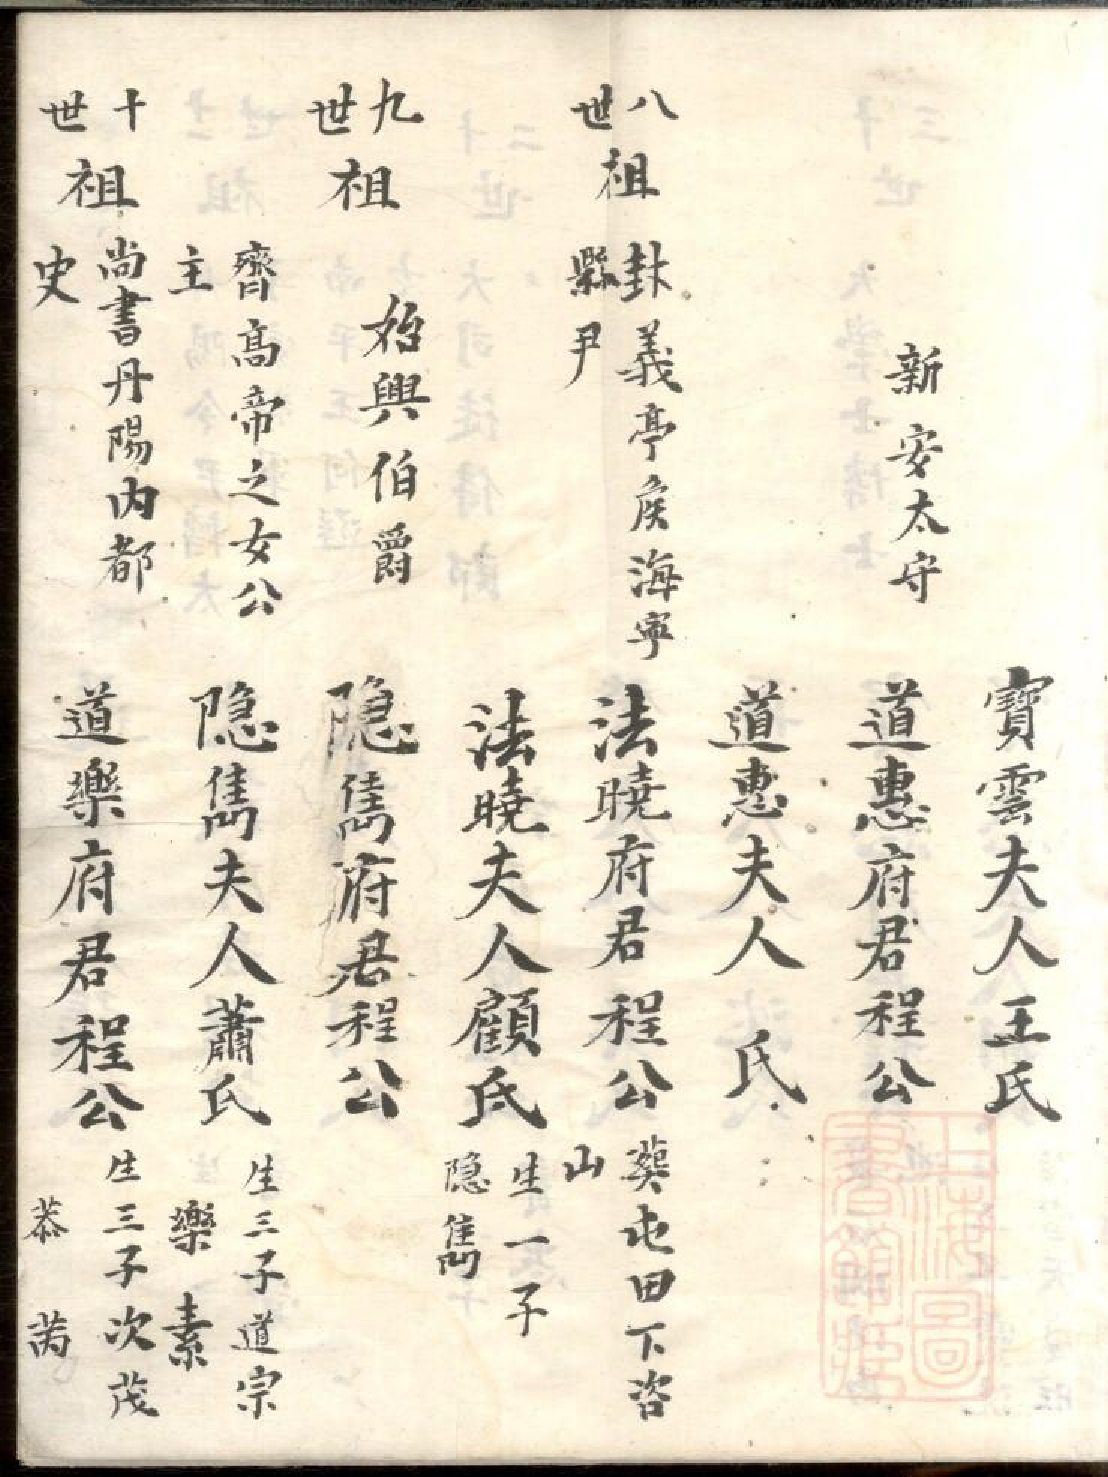 寶雲夫人王氏
新安太守
道惠府君程公
道惠夫人　氏
八世祖
封義亭侯海寧縣尹
法曉府君程公
葬屯田下咨山
法曉夫人顧氏
生一子隐雋
九世祖
始興伯爵
隐雋府君程公
齊高帝之女公主
隐雋夫人蕭氏
生三子道宗樂素
十世祖
尚書丹陽内都史
道樂府君程公
生三子次茂恭
上海圖書館藏